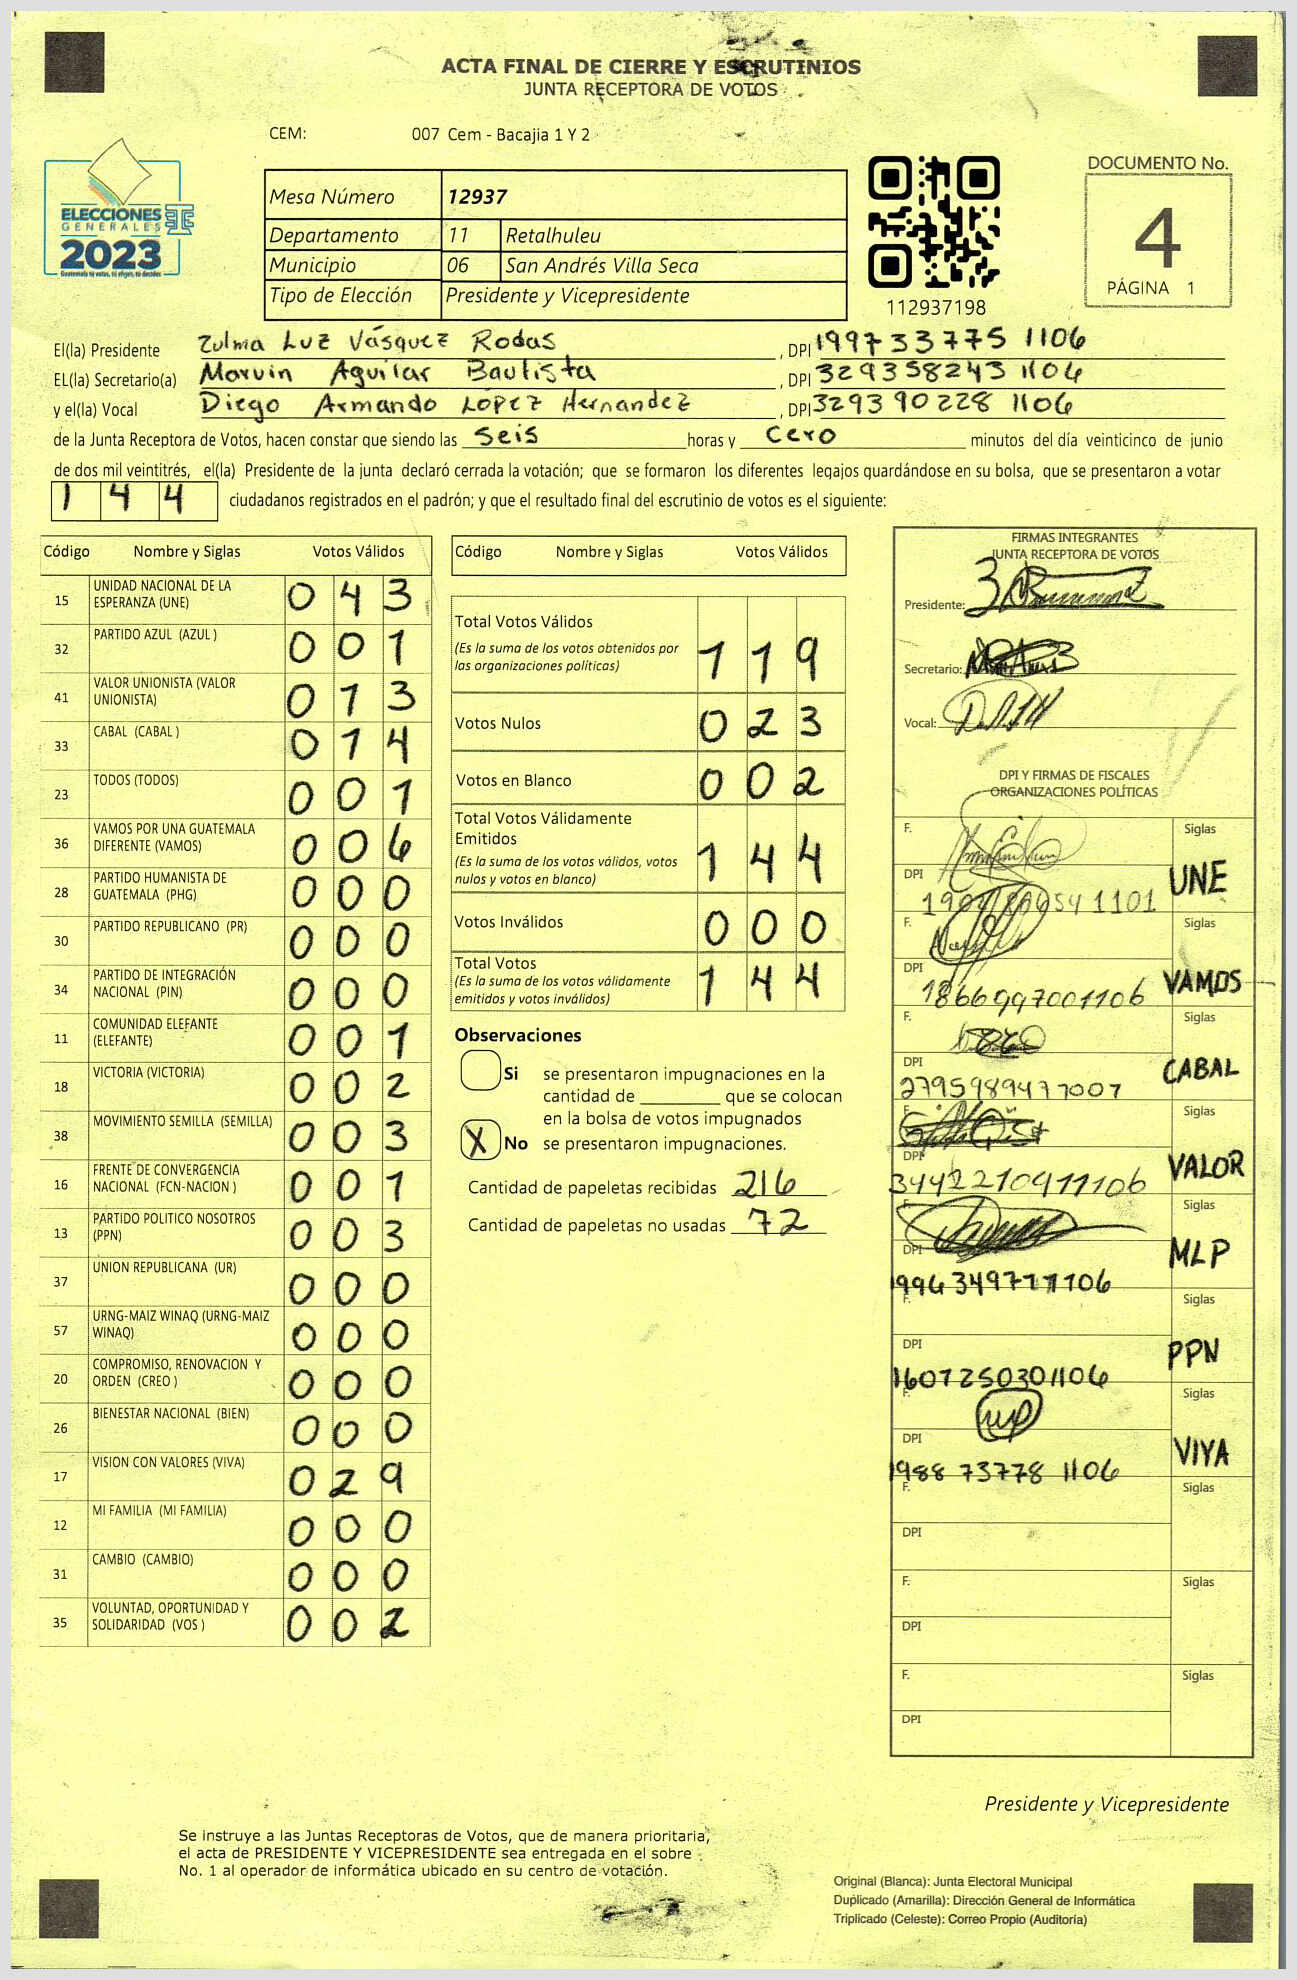 ACTA FINAL DE CIERRE Y ESCRUTINIOS
JUNTA RECEPTORA DE VOTOS
CEM: 007 Cem - Bacajia 1 Y 2
ELECCIONES
GENERALES
2023
Guatemala tú votas, tú eliges, tú decides
Mesa Número 12937
Departamento 11 Retalhuleu
Municipio 06 San Andrés Villa Seca
Tipo de Elección Presidente y Vicepresidente
112937198
DOCUMENTO No.
4
PÁGINA 1
El(la) Presidente Zulma Luz Vásquez Rodas , DPI 199733775 1106
EL(la) Secretario(a) Marvin Aguilar Bautista , DPI 329358243 1106
y el(la) Vocal Diego Armando López Hernandez , DPI 329390228 1106
de la Junta Receptora de Votos, hacen constar que siendo las seis horas y cero minutos del día veinticinco de junio
de dos mil veintitrés, el(la) Presidente de la junta declaró cerrada la votación; que se formaron los diferentes legajos quardándose en su bolsa, que se presentaron a votar
144 ciudadanos registrados en el padrón; y que el resultado final del escrutinio de votos es el siguiente:
Código Nombre y Siglas Votos Válidos
15 UNIDAD NACIONAL DE LA ESPERANZA (UNE) 043
32 PARTIDO AZUL (AZUL ) 001
41 VALOR UNIONISTA (VALOR UNIONISTA) 013
33 CABAL (CABAL ) 014
23 TODOS (TODOS) 001
36 VAMOS POR UNA GUATEMALA DIFERENTE (VAMOS) 006
28 PARTIDO HUMANISTA DE GUATEMALA (PHG) 000
30 PARTIDO REPUBLICANO (PR) 000
34 PARTIDO DE INTEGRACIÓN NACIONAL (PIN) 000
11 COMUNIDAD ELEFANTE (ELEFANTE) 001
18 VICTORIA (VICTORIA) 002
38 MOVIMIENTO SEMILLA (SEMILLA) 003
16 FRENTE DE CONVERGENCIA NACIONAL (FCN-NACION ) 001
13 PARTIDO POLITICO NOSOTROS (PPN) 003
37 UNION REPUBLICANA (UR) 000
57 URNG-MAIZ WINAQ (URNG-MAIZ WINAQ) 000
20 COMPROMISO, RENOVACION Y ORDEN (CREO ) 000
26 BIENESTAR NACIONAL (BIEN) 000
17 VISION CON VALORES (VIVA) 029
12 MI FAMILIA (MI FAMILIA) 000
31 CAMBIO (CAMBIO) 000
35 VOLUNTAD, OPORTUNIDAD Y SOLIDARIDAD (VOS ) 002
Código Nombre y Siglas Votos Válidos
Total Votos Válidos 119
(Es la suma de los votos obtenidos por
las organizaciones políticas)
Votos Nulos 023
Votos en Blanco 002
Total Votos Válidamente
Emitidos 144
(Es la suma de los votos válidos, votos
nulos y votos en blanco)
Votos Inválidos 000
Total Votos 144
(Es la suma de los votos válidamente
emitidos y votos inválidos)
Observaciones
Si se presentaron impugnaciones en la
cantidad de ________ que se colocan
en la bolsa de votos impugnados
X No se presentaron impugnaciones.
Cantidad de papeletas recibidas 216
Cantidad de papeletas no usadas 72
FIRMAS INTEGRANTES
JUNTA RECEPTORA DE VOTOS
Presidente:
Secretario:
Vocal:
DPI Y FIRMAS DE FISCALES
ORGANIZACIONES POLÍTICAS
F. Siglas
DPI UNE
F. Siglas
DPI 1866997001106 VAMOS
F. Siglas
DPI 2795989477007 CABAL
F. Siglas
DPI 3442210911106 VALOR
F. Siglas
DPI MLP
F. Siglas
DPI 1607250301106 PPN
F. Siglas
DPI 1988 73778 1106 VIVA
F. Siglas
DPI
F. Siglas
DPI
F. Siglas
DPI
Presidente y Vicepresidente
Se instruye a las Juntas Receptoras de Votos, que de manera prioritaria,
el acta de PRESIDENTE Y VICEPRESIDENTE sea entregada en el sobre
No. 1 al operador de informática ubicado en su centro de votación.
Original (Blanca): Junta Electoral Municipal
Duplicado (Amarilla): Dirección General de Informática
Triplicado (Celeste): Correo Propio (Auditoría)